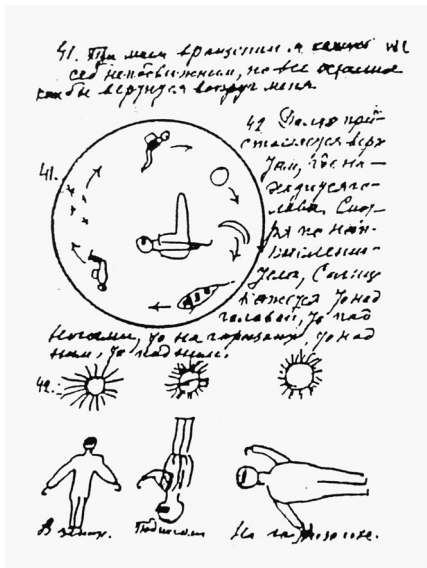 41. При моем вращении я кажусь
себе неподвижным, но все остальное
как бы вертится вокруг меня.
42
верх
там, где на-
ходится го-
лова. Смот-
ря по
тела, Солнце
кажется то над
головой, то под
ногами, то на горизонте, то над
ним, то под ним.
41.
42.
В зените.
Под ногами
На горизонте.